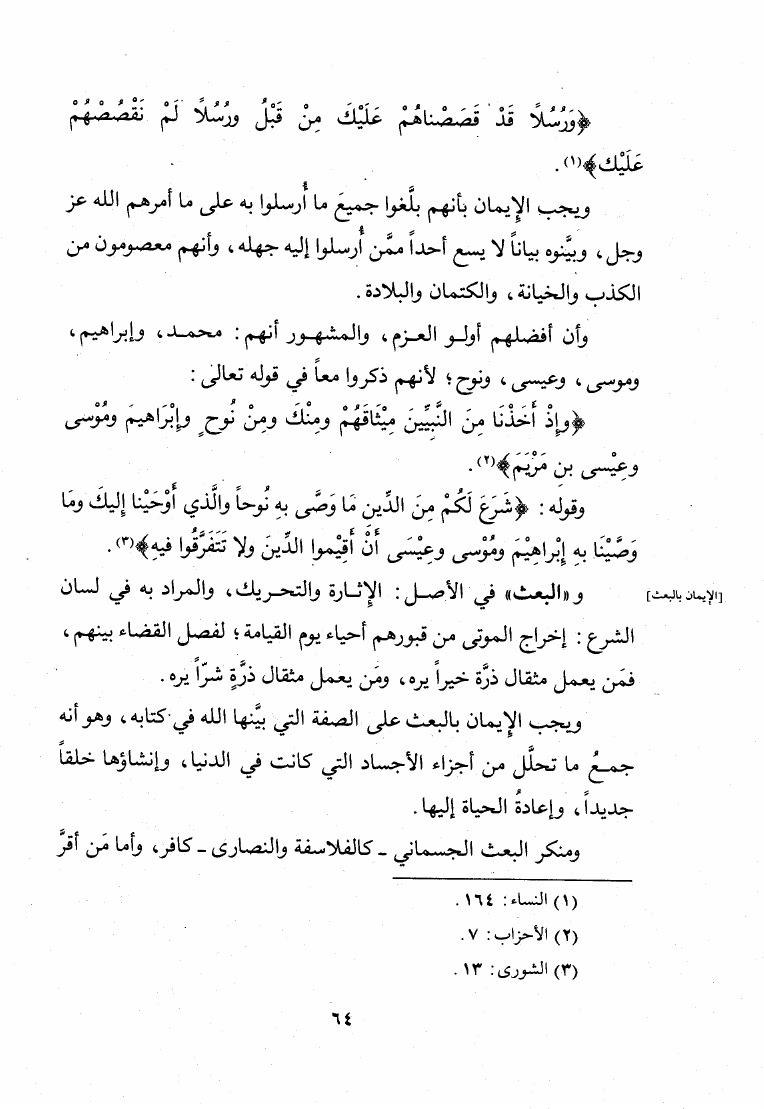 ﴿وَرُسُلاً قَدْ قَصَصْناهُمْ عَلَيْكَ مِنْ قَبْلُ ورُسُلاً لَمْ نَقْصُصْهُمْ
عَلَيْكَ﴾(١).
ويجب الإيمان بأنهم بلَّغوا جميعَ ما أُرسلوا به على ما أمرهم الله عز
وجل، وبيَّنوه بياناً لا يسع أحداً ممَّن أُرسلوا إليه جهله، وأنهم معصومون من
الكذب والخيانة، والكتمان والبلادة.
وأن أفضلهم أولو العزم، والمشهور أنهم: محمد، وإبراهيم،
وموسى، وعيسى، ونوح؛ لأنهم ذكروا معاً في قوله تعالى:
﴿وإِذْ أَخَذْنَا مِنَ النَّبِيِّينَ مِيْثَاقَهُمْ ومِنْكَ ومِنْ نُوحٍ وإِبْرَاهيمَ ومُوْسى
وعِيْسى بن مَرْيَمَ﴾(٢).
وقوله: ﴿شَرَعَ لَكُمْ مِنَ الدِّينِ مَا وَصَّى بِه نُوحاً والَّذي أَوْحَيْنا إليكَ وما
وَصَّيْنَا بِه إِبْراهيْمَ ومُوْسى وعِيْسَى أَنْ أَقِيْموا الدِّينَ ولا تَتَفَرَّقُوا فيهِ﴾(٣).
[الإيمان بالبعث]
و «البعث» في الأصل: الإثارة والتحريك، والمراد به في لسان
الشرع: إخراج الموتى من قبورهم أحياء يوم القيامة؛ لفصل القضاء بينهم،
فمَن يعمل مثقال ذرَّة خيراً يره، ومَن يعمل مثقال ذرَّةٍ شرّاً يره.
ويجب الإيمان بالبعث على الصفة التي بيَّنها الله في كتابه، وهو أنه
جمعُ ما تحلَّل من أجزاء الأجساد التي كانت في الدنيا، وإنشاؤها خلقاً
جديداً، وإعادةُ الحياة إليها.
ومنكر البعث الجسماني ـ كالفلاسفة والنصارى ـ كافر، وأما مَن أقرَّ
(١) النساء: ١٦٤.
(٢) الأحزاب: ٧.
(٣) الشورى: ١٣.
٦٤